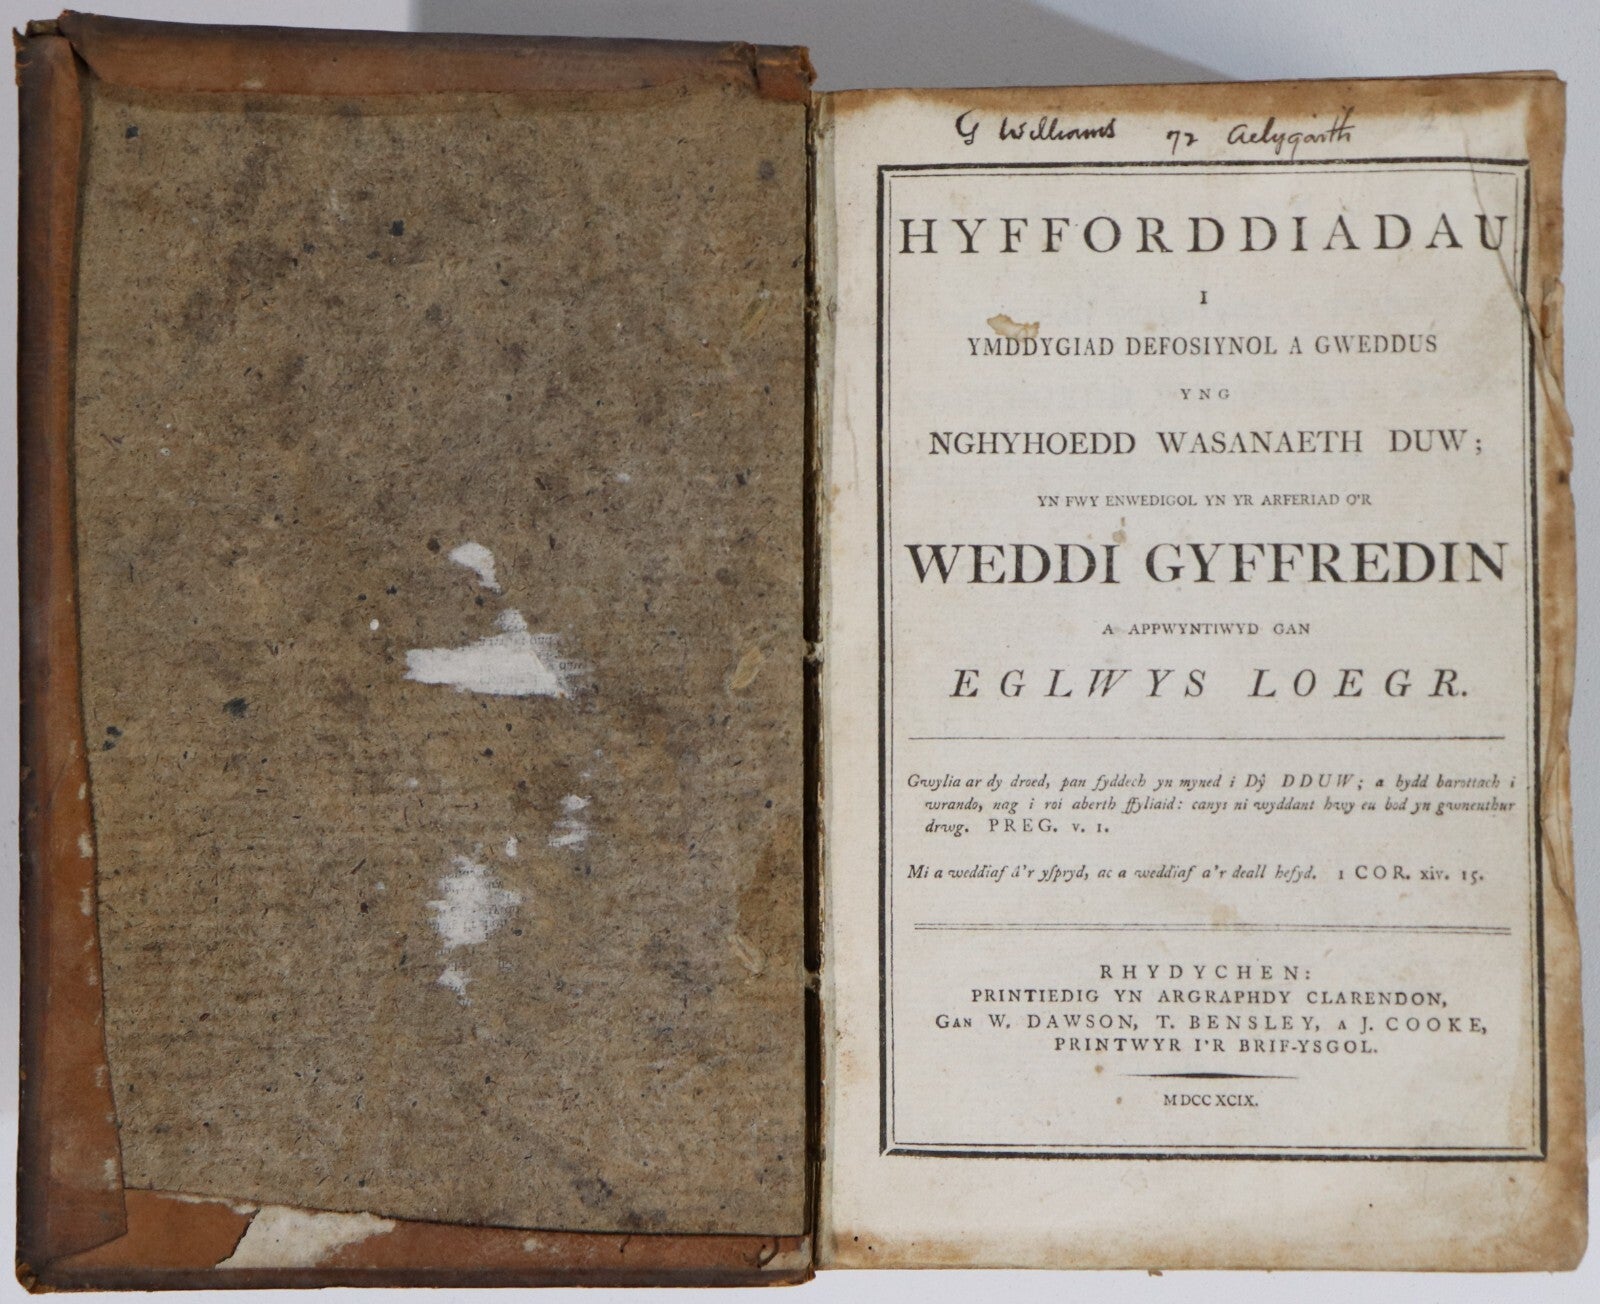 G Williams 72 Aelygarth
HYFFORDDIADAU
I
YMDDYGIAD DEFOSIYNOL A GWEDDUS
YNG
NGHYHOEDD WASANAETH DUW;
YN FWY ENWEDIGOL YN YR ARFERIAD O'R
WEDDI GYFFREDIN
A APPWYNTIWYD GAN
EGLWYS LOEGR.
Gwylia ar dy droed, pan fyddech yn myned i Dŷ DDUW; a bydd barottach i
wrando, nag i roi aberth ffyliaid: canys ni wyddant hwy eu bod yn gwneuthur
drwg. PREG. v. 1.
Mi a weddiaf â'r yſpryd, ac a weddiaf a'r deall hefyd. 1 COR. xiv. 15.
RHYDYCHEN:
PRINTIEDIG YN ARGRAPHDY CLARENDON,
GAN W. DAWSON, T. BENSLEY, A J. COOKE,
PRINTWYR I'R BRIF-YSGOL.
MDCCXCIX.